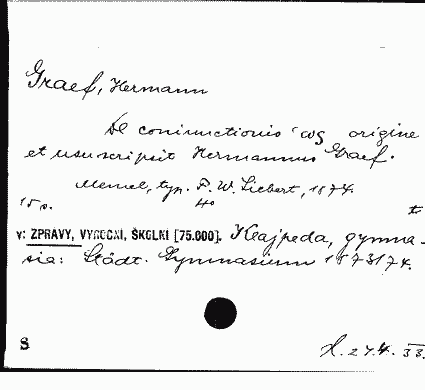 Graef, Hermann
De coniunctionis ὡς origine
et usu scripsit Hermannus Graef.
Memel, typ. F. W. Siebert, 1874.
15 s. 4o
v: ZPRÁVY, VÝROČNÍ, ŠKOLNÍ [75.000]. Klajpeda, gymna-
sia: Städt. Gymnasium 1873/74.
8
24.4. 33.